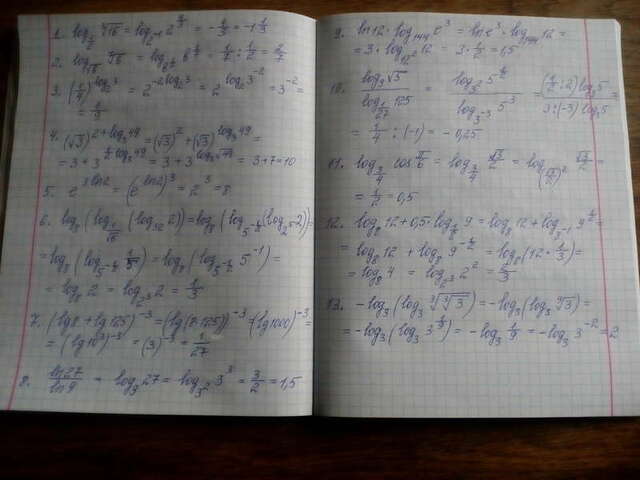 1. log_{1/2} ∛16 = log_{2^{-1}} 2^{4/3} = -4/3 = -1 1/3
2.
3. (1/4)^{log_2 3} = 2^{-2log_2 3} = 2^{log_2 3^{-2}} = 3^{-2} =
= 1/9
4. (√3)^{2+log_3 49} = (√3)^2 · (√3)^{log_3 49} =
= 3 + 3^{1/2 log_3 49} = 3 + 3^{log_3 √49} = 3+7=10
5. e^{3ln2} = (e^{ln2})^3 = 2^3 = 8
6. log_8 (log_{1/√5} (log_{32} 2)) = log_8 (log_{5^{-1/2}} (log_{2^5} 2)) =
= log_8 (log_{5^{-1/2}} 1/5) = log_8 (log_{5^{-1/2}} 5^{-1}) =
= log_8 2 = log_{2^3} 2 = 1/3
7. (lg8 + lg125)^{-3} = (lg(8·125))^{-3} = (lg1000)^{-3} =
= (lg10^3)^{-3} = (3)^{-3} = 1/27
8. ln27/ln9 = log_9 27 = log_{3^2} 3^3 = 3/2 = 1,5
9. ln12 · log_{144} e^3 = ln e^3 · log_{144} 12 =
= 3 · log_{12^2} 12 = 3 · 1/2 = 1,5
10. log_3 √5 / log_{1/27} 125 = log_3 5^{1/2} / log_{3^{-3}} 5^3 =
= 1/4 : (-1) = -0,25
11. log_{3/4} cos π/6 = log_{3/4} √3/2 = log_{(√3/2)^2} √3/2 =
= 1/2 = 0,5
12. log_8 12 + 0,5 · log_{1/8} 9 = log_8 12 + log_{8^{-1}} 9^{1/2} =
= log_8 12 + log_8 9^{-1/2} = log_8 (12 · 1/3) =
= log_8 4 = log_{2^3} 2^2 = 2/3
13. -log_3 (log_3 ∛(∛3)) = -log_3 (log_3 ⁹√3) =
= -log_3 (log_3 3^{1/9}) = -log_3 1/9 = -log_3 3^{-2} = 2